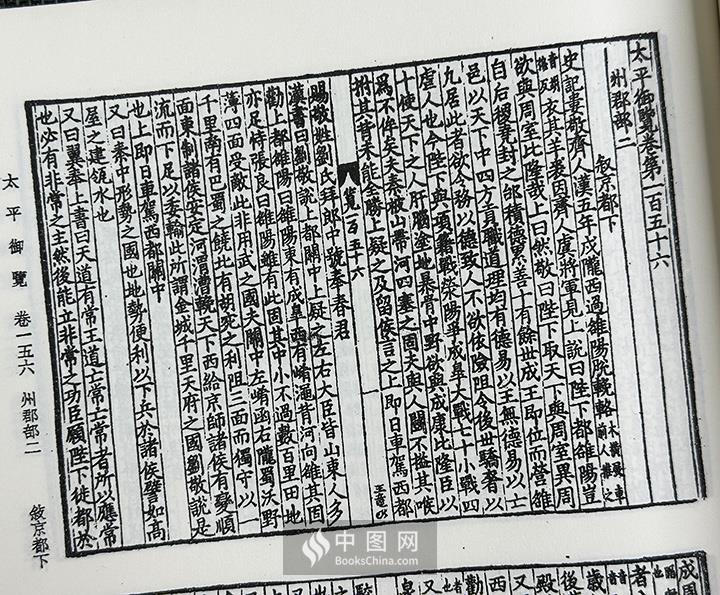 太平御覽卷第一百五十六
州郡部二
敘京都下
史記婁敬齊人漢五年戍隴西過雒陽脫輓輅木橫遮車前人推之
衣其羊裘因齊人虞將軍見上說曰陛下都雒陽豈
欲與周室比隆哉上曰然敬曰陛下取天下與周室異周
自后稷堯封之邰積德累善十有餘世成王即位而營雒
邑以天下中四方貢職道理均有德易以王無德易以亡
凡居此者欲令務以德致人不欲依險阻令後世驕奢以
虐人也今陛下與項籍戰滎陽爭成皋大戰七十小戰四
十使天下之人肝腦塗地暴骨中野欲與成康比隆臣以
為不侔矣夫秦被山帶河四塞之固夫與人鬭不搤其喉
拊其背未能全勝上疑之及留侯言之上即日車駕西都
覽一百五十六
賜敬姓劉氏拜郎中號奉春君
漢書曰劉敬說上都關中上疑之左右大臣皆山東人多
勸上都雒陽曰雒陽東有成皋西有崤澠背河向雒其固
亦足恃張良曰雒陽雖有此固其中小不過數百里田地
薄四面受敵此非用武之國夫關中左崤函右隴蜀沃野
千里南有巴蜀之饒北有胡宛之利阻三面而獨守以一
面東制諸侯安定河渭漕輓天下西給京師諸侯有變順
流而下足以委輸此所謂金城千里天府之國劉敬說是
也上即日車駕西都關中
又曰秦中形勢之國也地勢便利以下兵於諸侯譬如高
屋之建瓴水也
又曰翼奉上書曰天道有常王道亡常亡常者所以應常
也必有非常之主然後能立非常之功臣願陛下徙都於
太平御覽 卷一五六 州郡部二 敘京都下
中图网
BooksChina.com